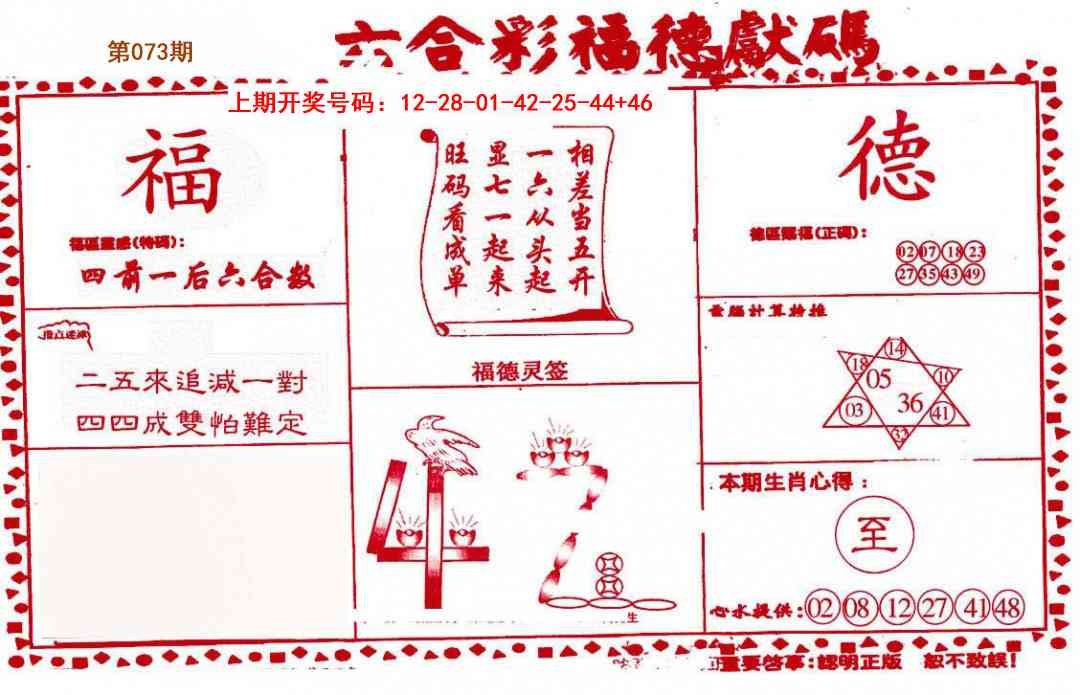 第073期
六合彩福德獻碼
上期开奖号码：12-28-01-42-25-44+46
福
福區靈感(特碼)：
四前一后六合数
二五來追減一對
四四成雙怕難定
相差当五开
一六从头起
显七一起来
旺码看成单
福德灵签
42
生
德
德區賜福(正碼)：
02 07 18 23
27 35 43 49
電腦計算檢推
14
18 05 10
03 36 41
32
本期生肖心得：
至
心水提供：02 08 12 27 41 48
重要啓事：認明正版 恕不致誤！